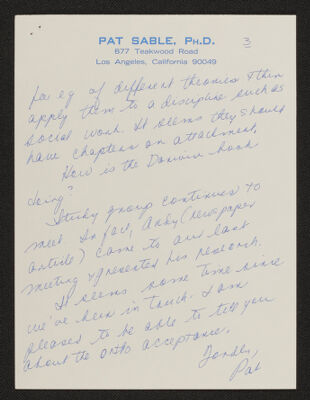 PAT SABLE, PH.D.
3
677 Teakwood Road
Los Angeles, California 90049
for eg of different theories & then
apply them to a discipline such as
social work. It seems they should
have chapters on attachment.
How is the Darwin book
doing?
Study group continues to
meet. In fact, Andy (newspaper
article) came to our last
meeting & presented his research.
It seems some time since
we've been in touch. I am
pleased to be able to tell you
about the ortho acceptance.
Fondly,
Pat